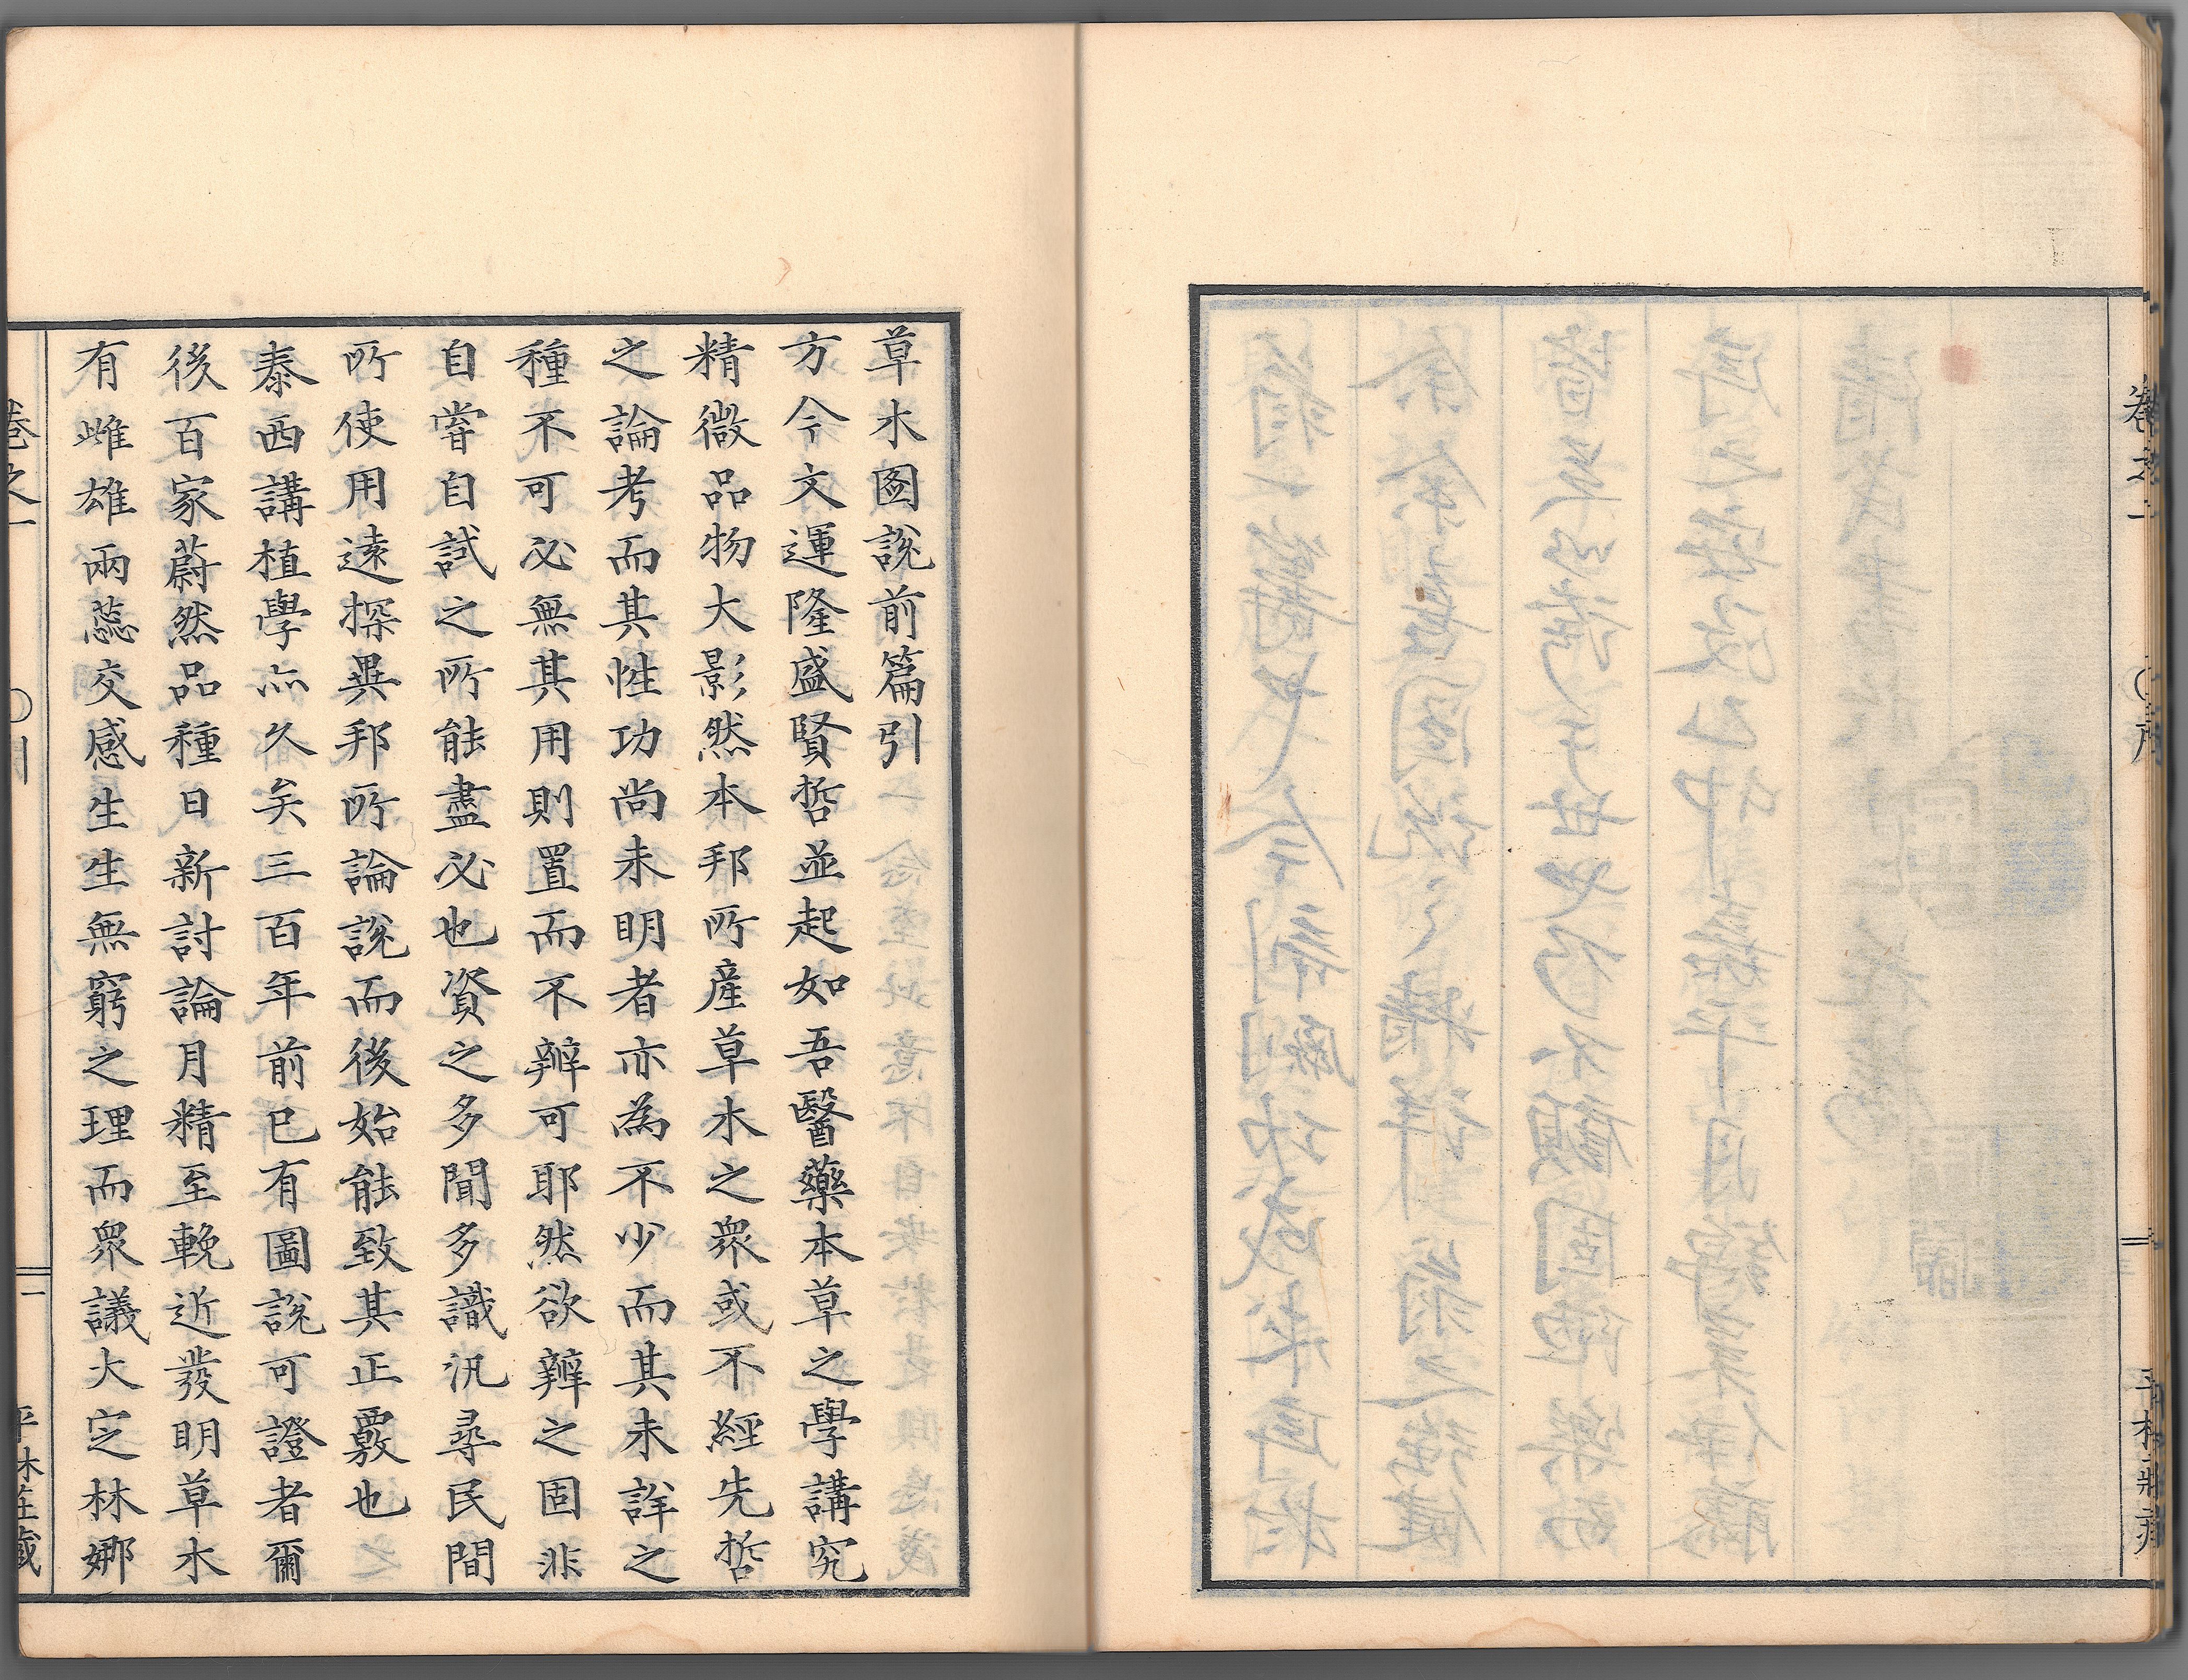 草木圖說前篇引
方今文運隆盛賢哲並起如吾醫藥本草之學講究
精微品物大影然本邦所產草木之眾或不經先哲
之論考而其性功尚未明者亦為不少而其未詳之
種不可必無其用則置而不辨可耶然欲辨之固非
自嘗自試之所能盡必也資之多聞多識汎尋民間
所使用遠探異邦所論說而後始能致其正覈也
泰西講植學亦久矣三百年前已有圖說可證者爾
後百家蔚然品種日新討論月精至輓近發明草木
有雌雄兩蕊交感生生無窮之理而眾議大定林娜
卷之一
○引
一
平林莊藏
卷之一
○序
平林莊藏